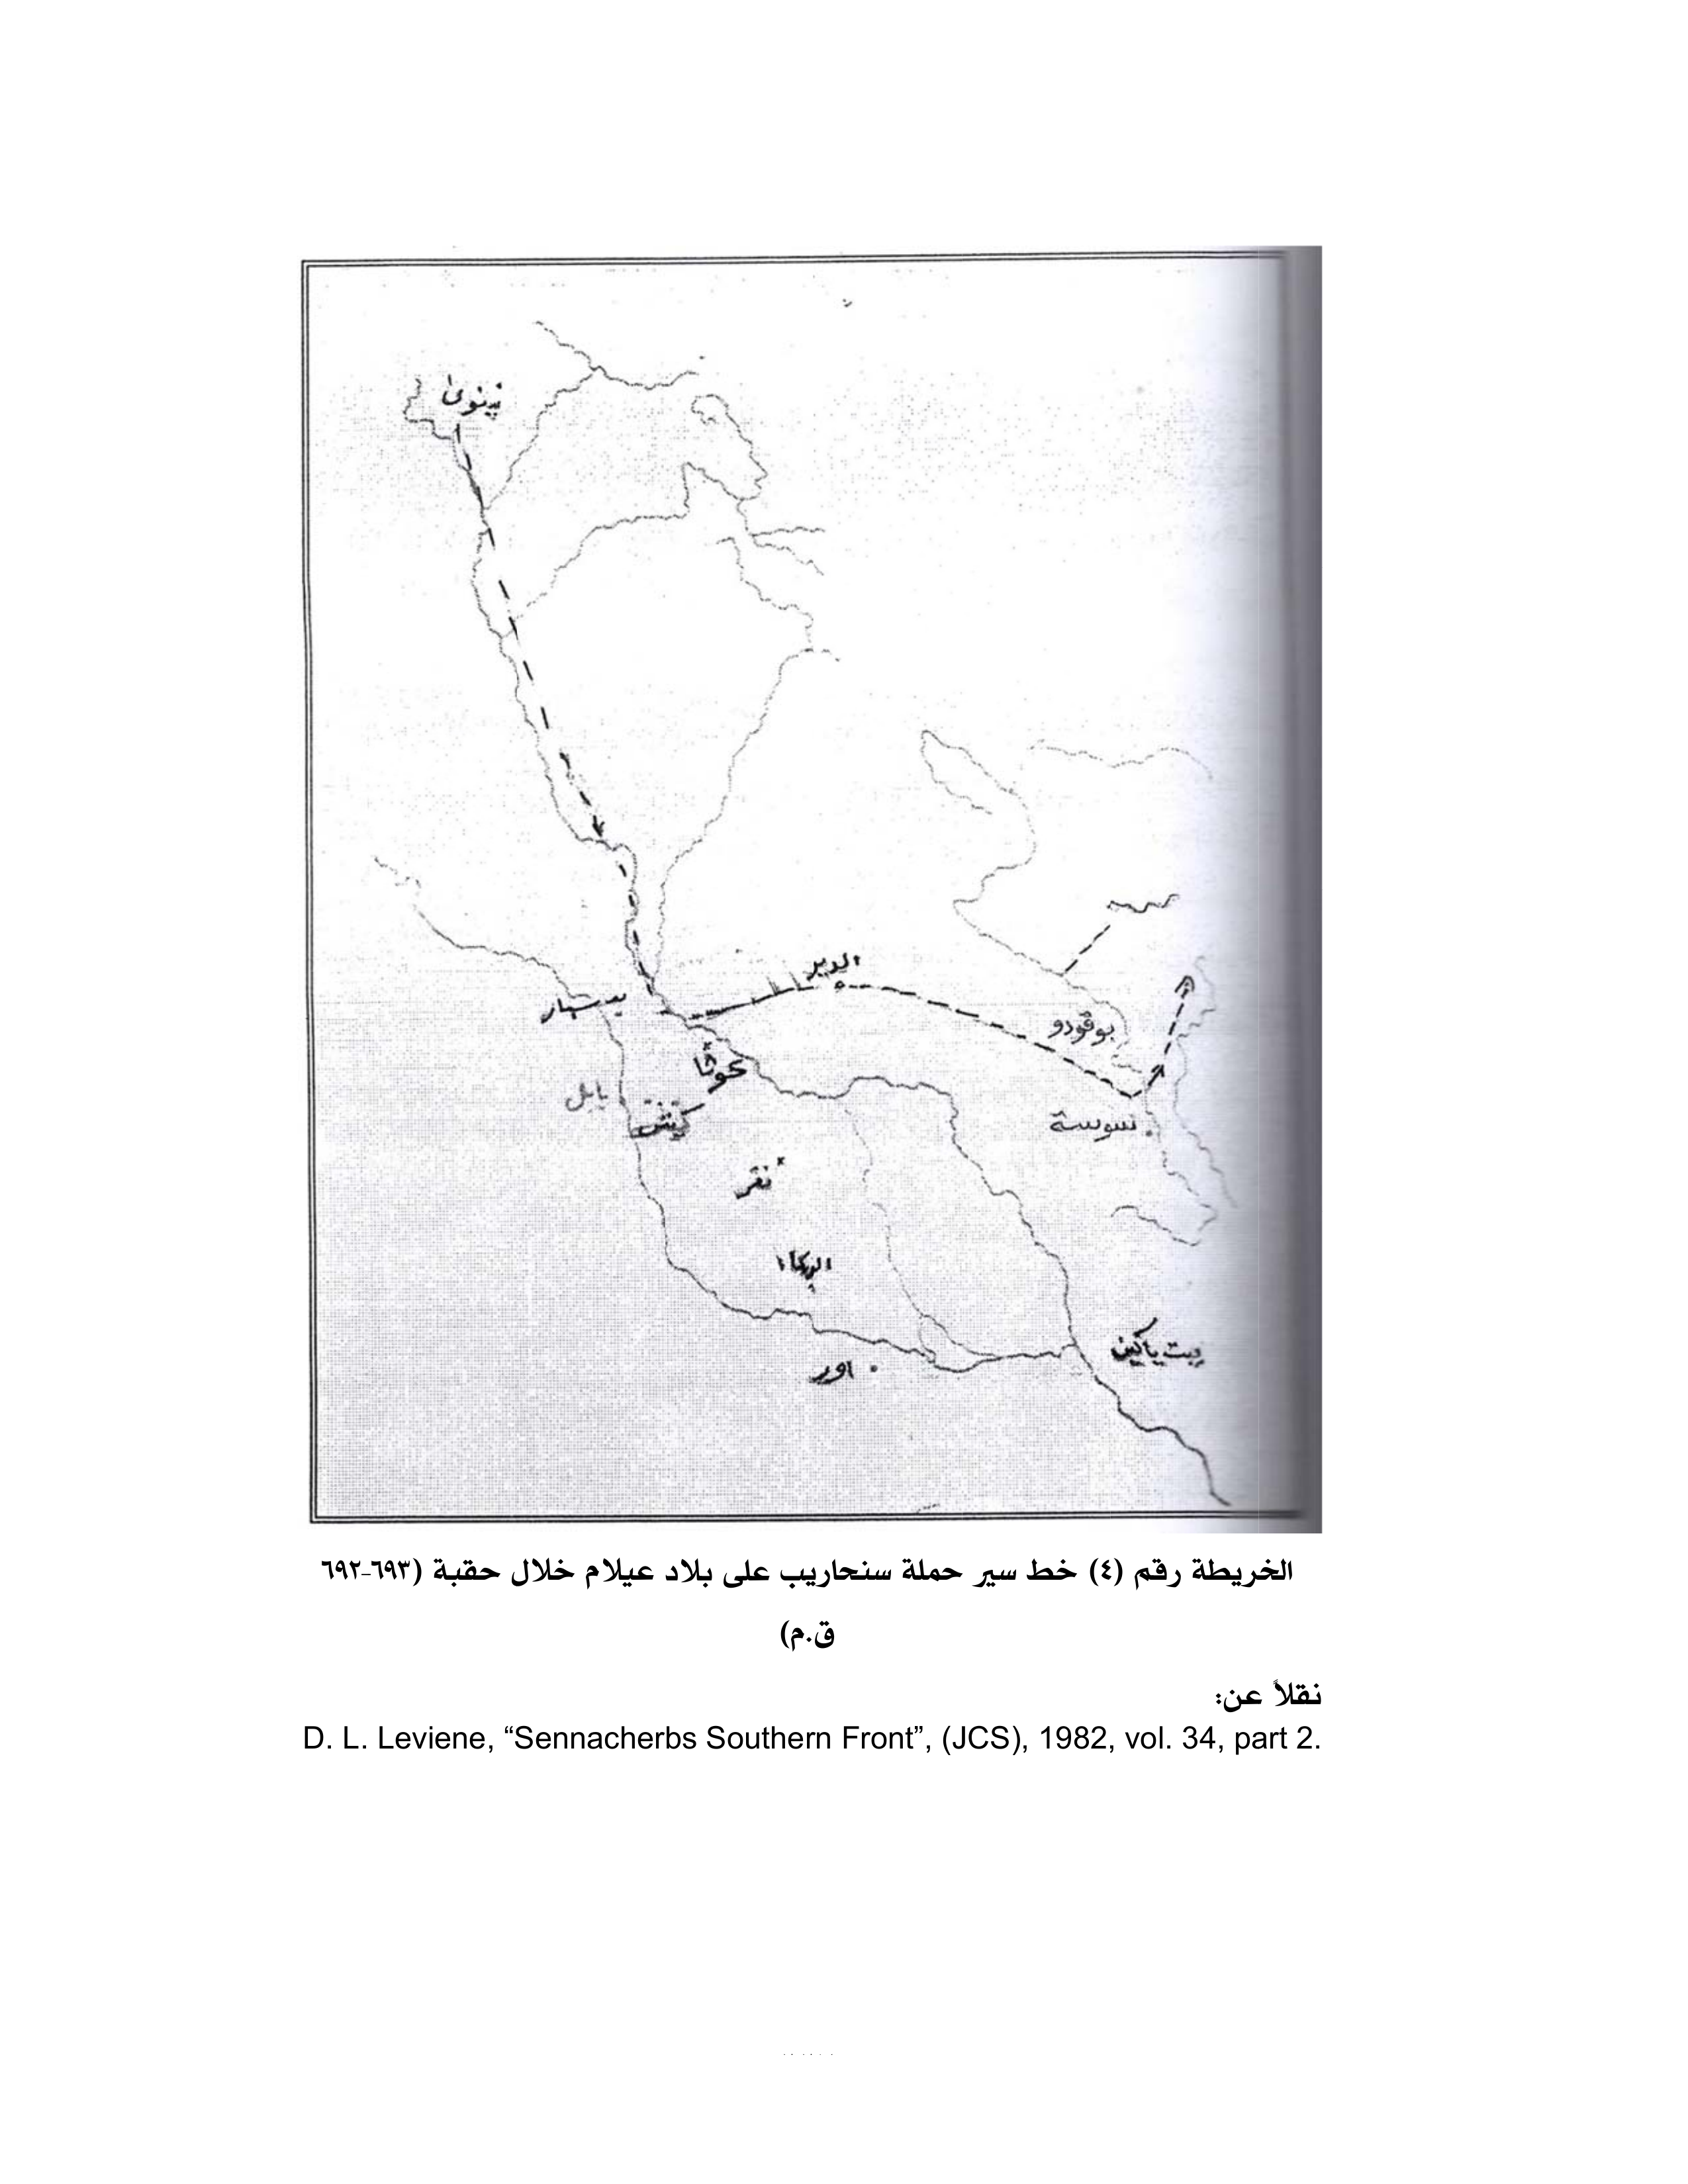 نينوى
الدير
سبار
بوقودو
كوثا
بابل
كيش
سوسة
نفر
الوركاء
بيت ياكين
اور
الخريطة رقم (٤) خط سير حملة سنحاريب على بلاد عيلام خلال حقبة (٦٩٣-٦٩٢
ق.م)
نقلاً عن:
D. L. Leviene, “Sennacherbs Southern Front”, (JCS), 1982, vol. 34, part 2.